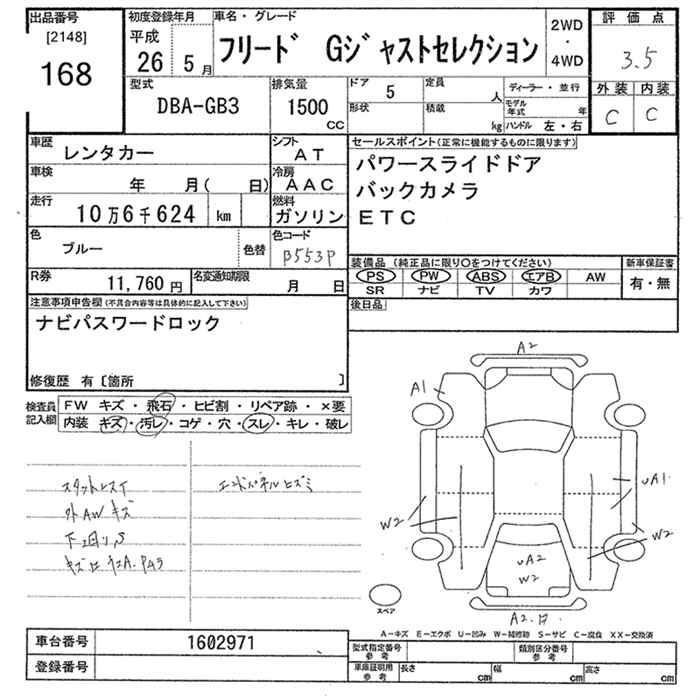 出品番号
[2148]
168
初度登録年月
平成
26 5月
車名・グレード
フリード Gジャストセレクション
2WD
・
4WD
評価点
3.5
外装 内装
C C
型式
DBA-GB3
排気量
1500
CC
ドア 5
形状
定員 人
積載 kg
ディーラー・並行
モデル年式 年
ハンドル 左・右
車歴
レンタカー
シフト
AT
車検
年 月( 日)
冷房
AAC
走行
10万6千624 km
燃料
ガソリン
色
ブルー
色替
色コード
B553P
R券
11,760 円
名変通知期限
月 日
セールスポイント(正常に機能するものに限ります)
パワースライドドア
バックカメラ
ETC
装備品 (純正品に限り〇をつけてください)
PS PW ABS エアB AW
SR ナビ TV カワ
新車保証書
有・無
後日品
注意事項申告欄(不具合内容等は具体的に記入して下さい)
ナビパスワードロック
修復歴 有〔箇所 〕
検査員記入欄
FW キズ・飛石・ヒビ割・リペア跡・×要
内装 キズ・汚レ・コゲ・穴・スレ・キレ・破レ
エンドパネルヒズミ
外AWキズ
A2
A1
UA1
W2
W2
UA2
W2
スペア
A-キズ E-エクボ U-凹み W-補修跡 S-サビ C-腐食 XX-交換済
車台番号
1602971
登録番号
型式指定番号
参考
類別区分番号
参考
車庫証明用
参考
長さ cm
幅 cm
高さ cm